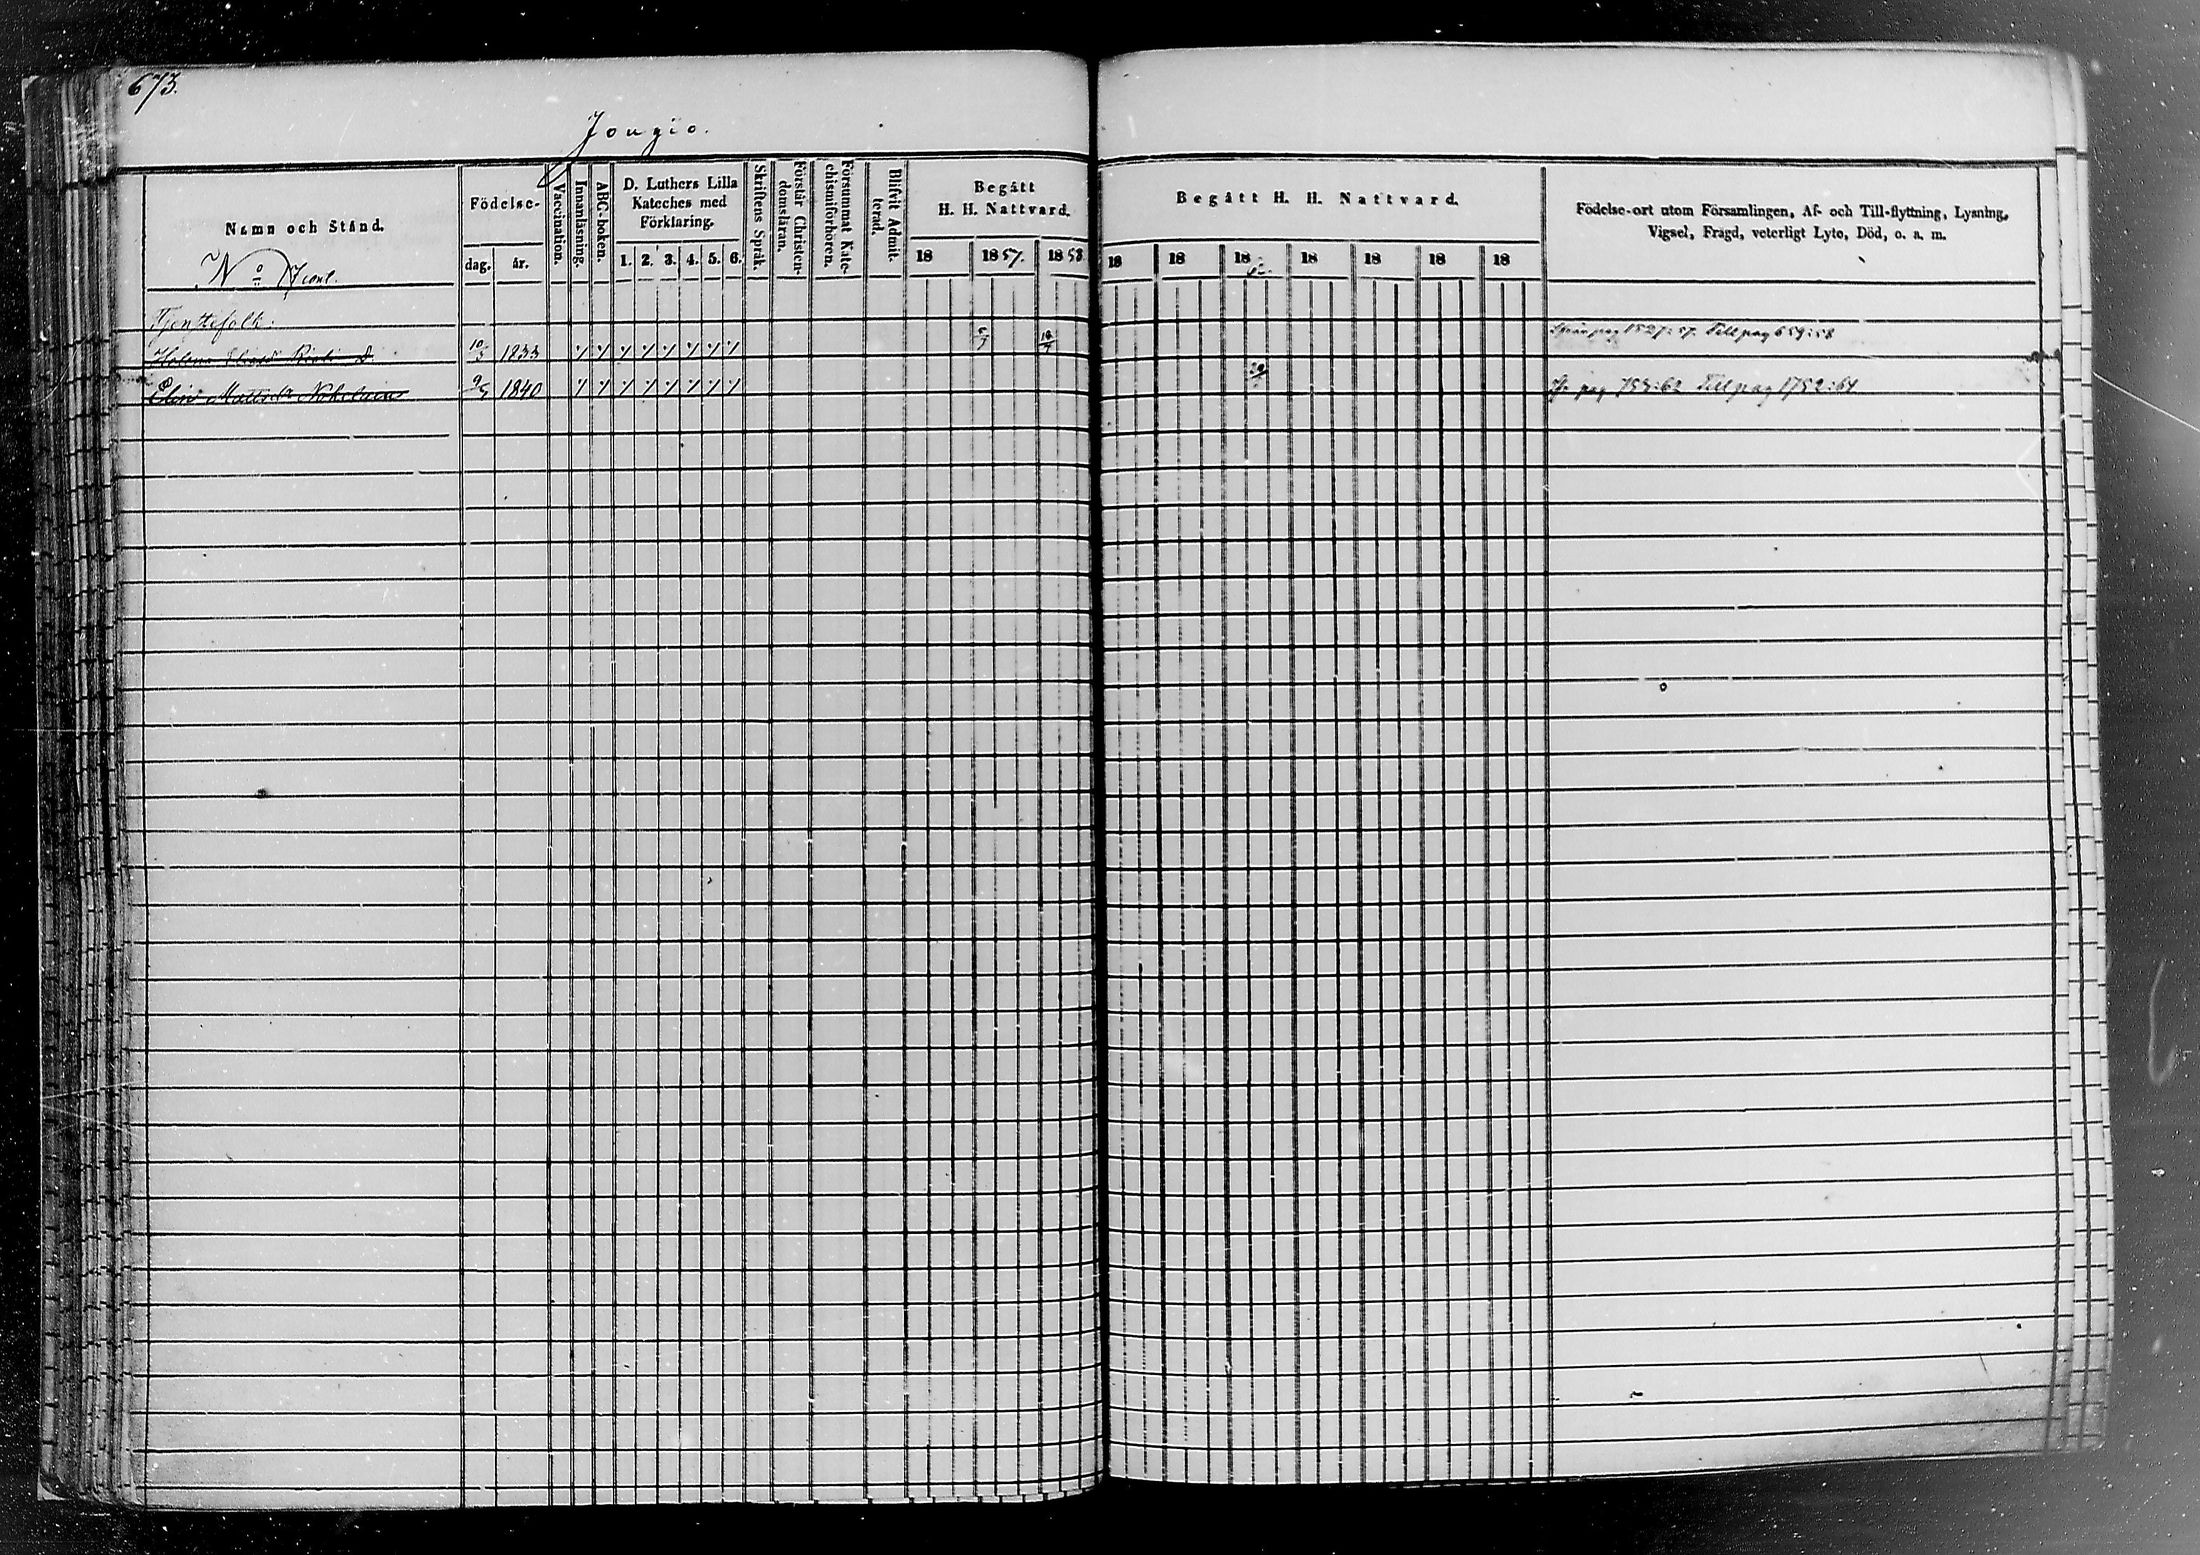 673.
Jougio.
Namn och Stånd.
Födelse-
dag.
år.
Vaccination.
Innanläsning.
ABC-boken.
D. Luthers Lilla
Kateches med
Förklaring.
1. 2. 3. 4. 5. 6.
Skriftens Språk.
Förstår Christen-
domsläran.
Försummat Kate-
chismiförhören.
Blifvit Admit-
terad.
Begått
H. H. Nattvard.
18 1857. 1858.
Begått H. H. Nattvard.
18 18 1862. 18 18 18 18
Födelse-ort utom Församlingen, Af- och Till-flyttning, Lysning,
Vigsel, Frägd, veterligt Lyte, Död, o. s. m.
Tjenstefolk:
Helena 10/3 1833 Från pag 1527:57. Till pag 659:58
Elin Mattsdr 1840 Fr pag 753:62 Till pag 1752:64